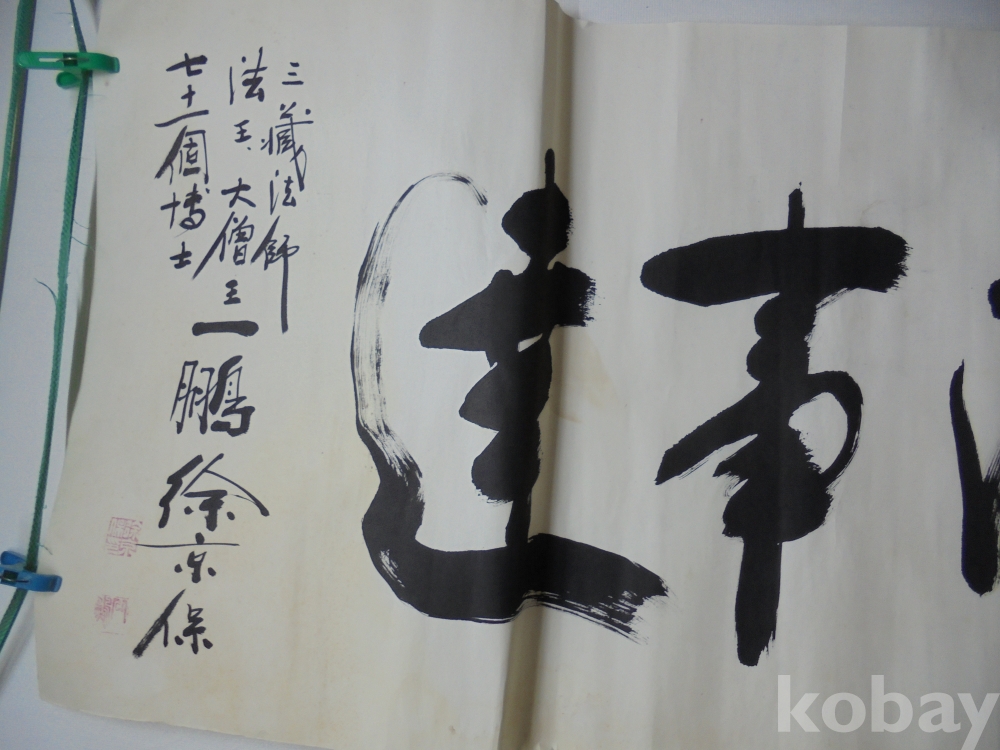 事達
三藏法師
法王大僧王
七十一個博士
一鵬徐京保
kobay